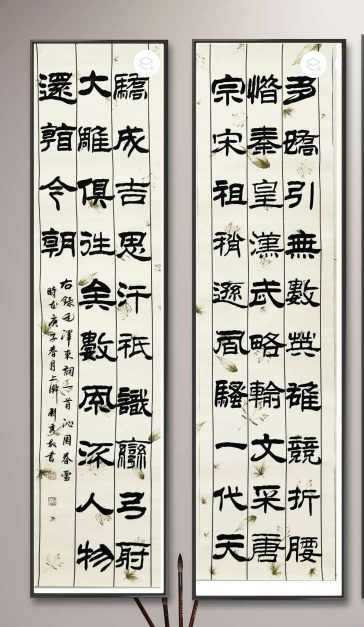 多嬌引無數英雄競折腰
惜秦皇漢武略輸文采唐
宗宋祖稍遜風騷一代天
驕成吉思汗祇識彎弓射
大雕俱往矣數風流人物
還看今朝
右錄毛澤東詞一首沁園春雪
時在庚子春月上澣書